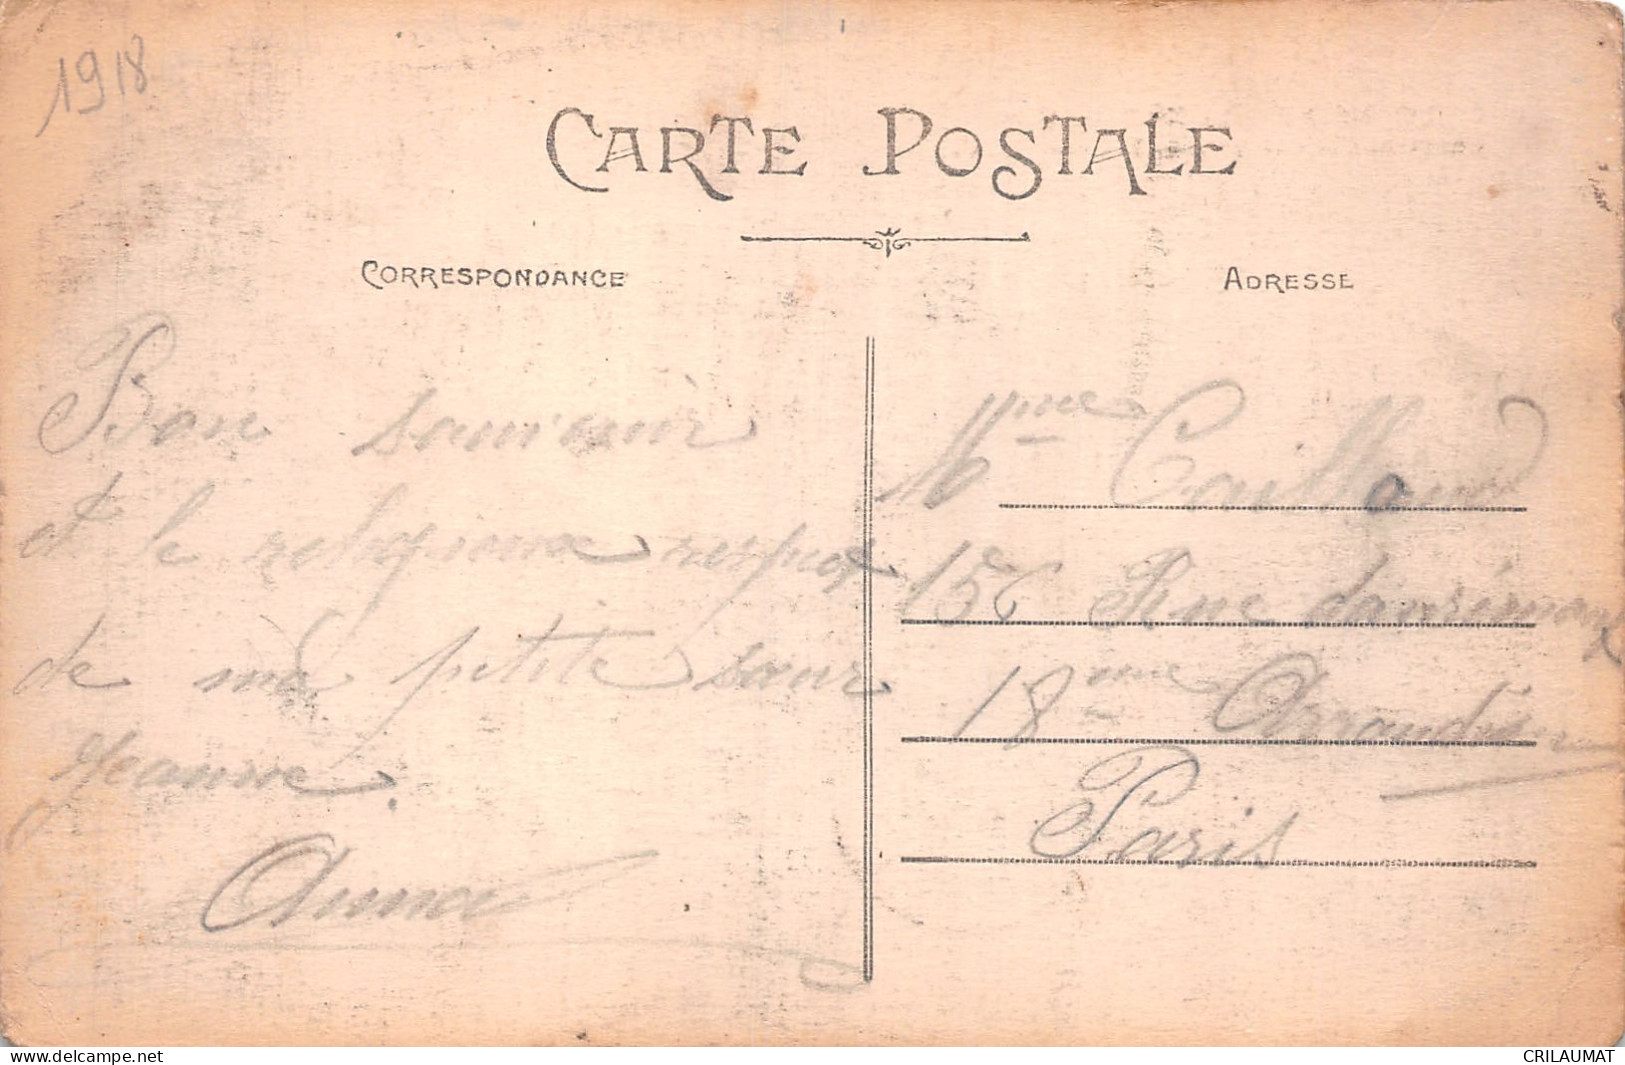 1918
CARTE POSTALE
CORRESPONDANCE
ADRESSE
Bon souvenir
et le respect
de ma petite sœur
Jeanne.
Anna
Mme Caillaud
156 Rue damrémont
18me Arrondis
Paris
www.delcampe.net
CRILAUMAT